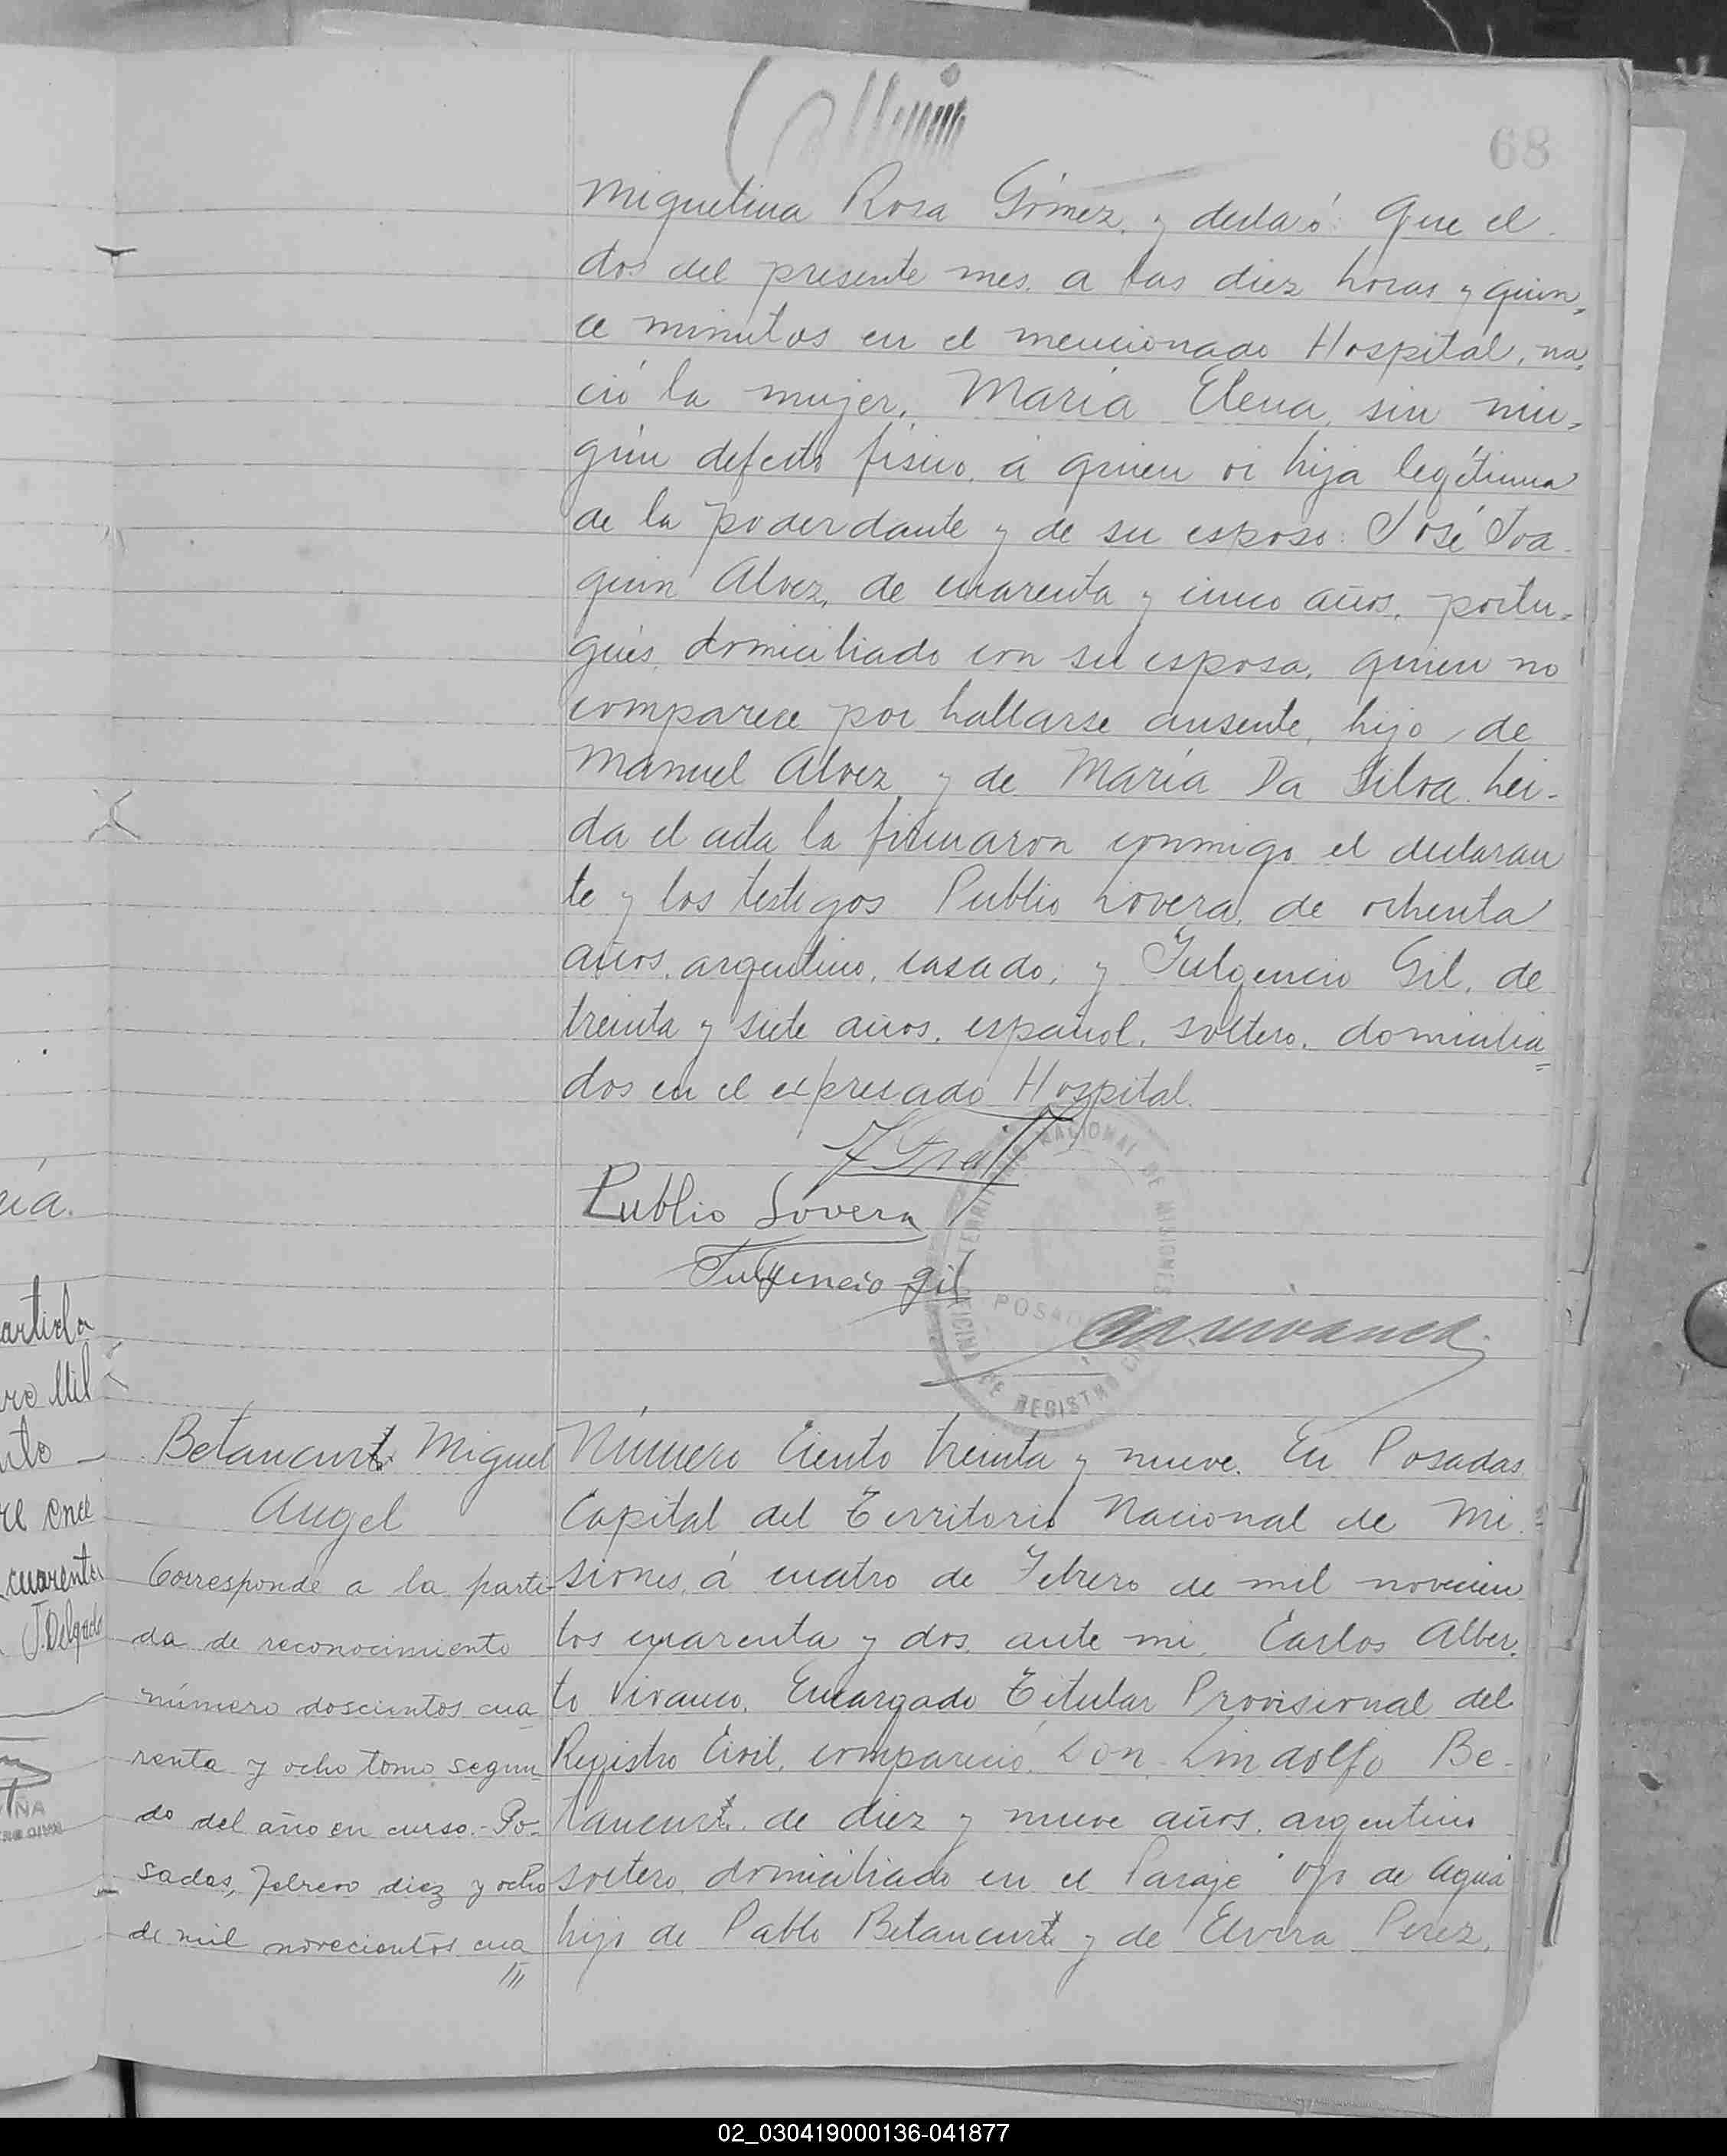 68
Miguelina Rosa Gómez, y declaró: Que el
dos del presente mes, a las diez horas y quin,
ce minutos en el mencionado Hospital, na,
ció la mujer, María Elena, sin nin,
gún defecto físico, á quien vi hija legítima
de la poderdante y de su esposo: José Joa
quin Alvez, de cuarenta y cinco años, portu,
gués, domiciliado con su esposa, quien no
comparece por hallarse ausente, hijo de
Manuel Alvez, y de María Da Silva. Leí-
da el acta la firmaron conmigo el declaran
te y los testigos Publio Lovera, de ochenta
años, argentino, casado, y Fulgencio Gil, de
treinta y siete años, español, soltero, domicilia=
dos en el expresado Hospital.
Publio Lovera
Fulgencio Gil
TERRITORIO NACIONAL DE MISIONES
POSADAS
OFICINA DE REGISTRO
Betancurt Miguel
Angel
Corresponde a la parti-
da de reconocimiento
número doscientos cua
renta y ocho tomo segun
do del año en curso.- Po-
sadas, Febrero diez y ocho
de mil novecientos cua
///
Número Ciento treinta y nueve. En Posadas
Capital del Territorio Nacional de Mi
siones, á cuatro de Febrero de mil novecien
tos cuarenta y dos, ante mi, Carlos Alber,
to Vivanco, Encargado Titular Provisional del
Registro Civil, compareció Don Lindolfo Be-
tancurt, de diez y nueve años, argentino
soltero, domiciliado en el Paraje "Ojo de Agua"
hijo de Pablo Betancurt y de Elvira Perez,
cuarenta
J. Delgado
02_030419000136-041877